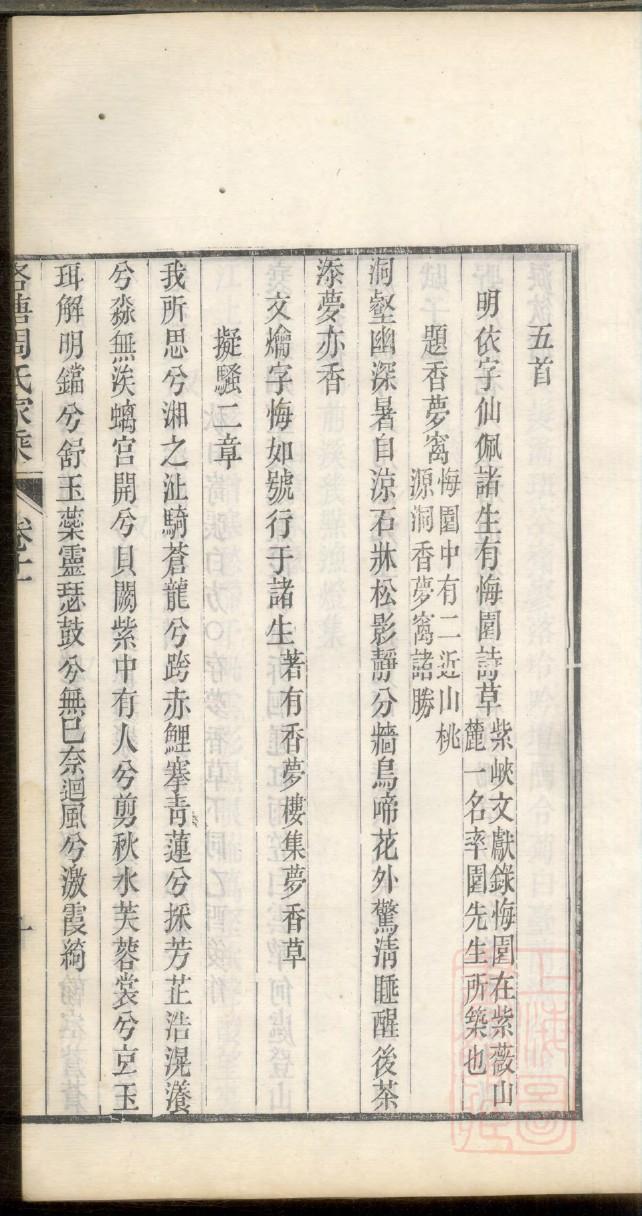 五首
明依字仙佩諸生有悔園詩草紫峽文獻錄悔園在紫薇山麓一名率園先生所築也
題香夢窩悔園中有二近山桃源洞香夢窩諸勝
洞壑幽深暑自涼石牀松影靜分牆鳥啼花外驚清睡醒後茶
添夢亦香
文爚字悔如號行于諸生著有香夢樓集夢香草
擬騷二章
我所思兮湘之沚騎蒼龍兮跨赤鯉搴青蓮兮採芳芷浩滉瀁
兮淼無涘螭宮開兮貝闕紫中有人兮剪秋水芙蓉裳兮豆玉
珥解明鐺兮舒玉蘂靈瑟鼓兮無巳奈迴風兮激霞綺
周氏家乘
卷十一